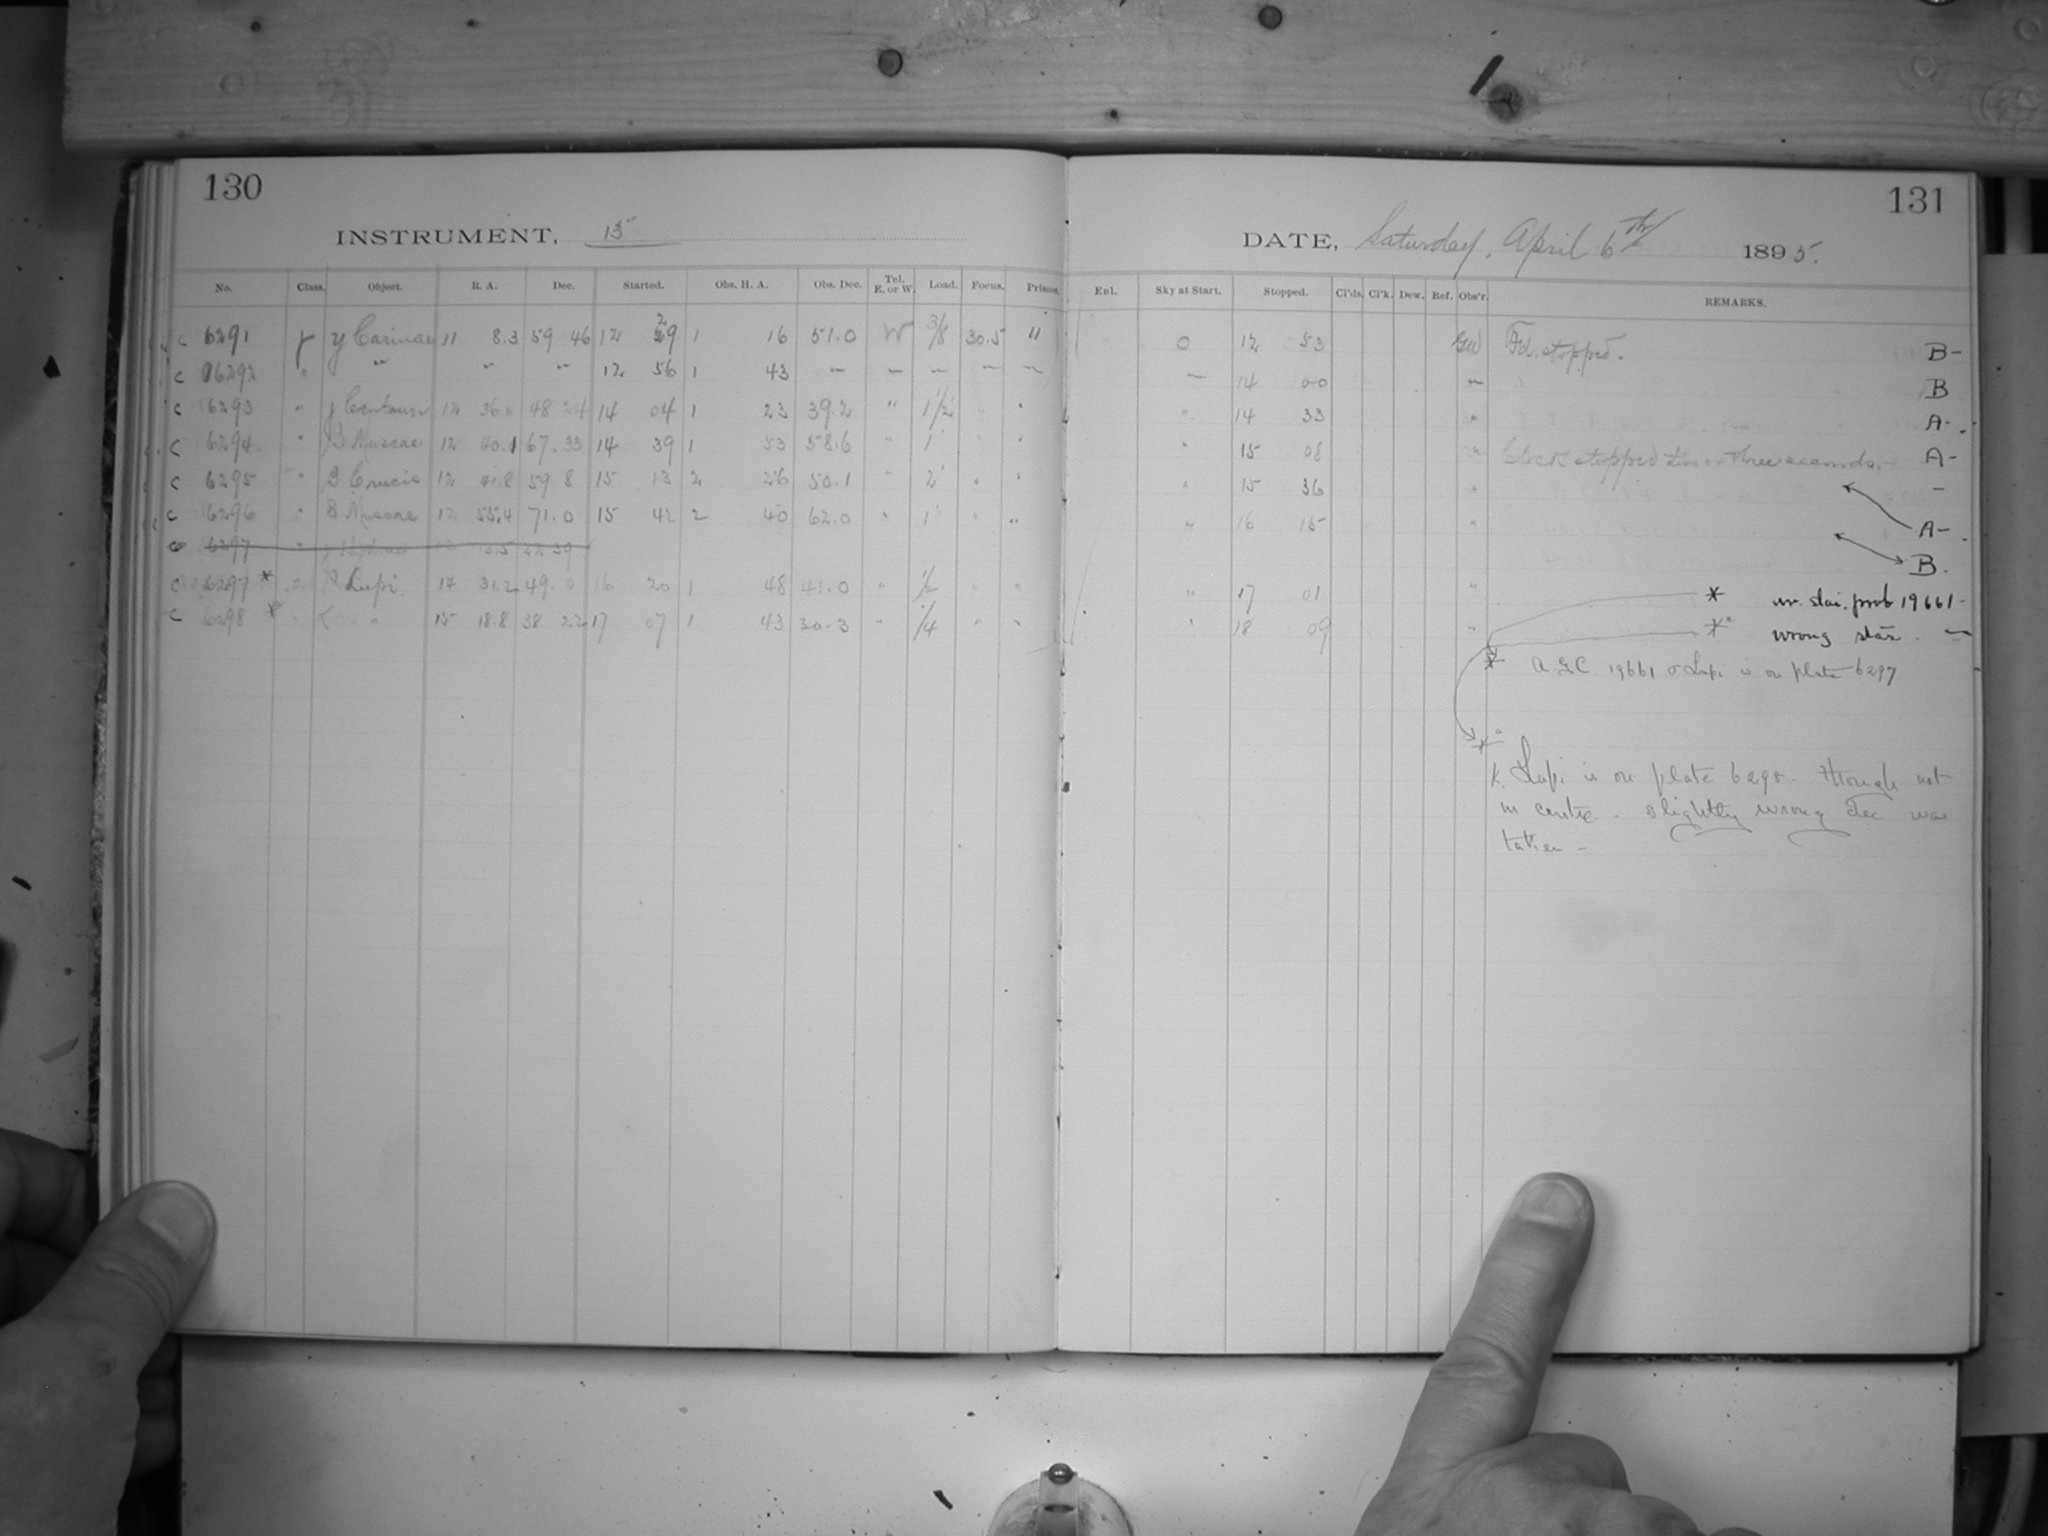 130
INSTRUMENT, 13"
No. Class. Object. R. A. Dec. Started. Obs. H. A. Obs. Dec. Tel. E. or W. Load. Focus. Prisms.
c 6291 y Carinae 11 8.3 59 46 12 29 1 16 51.0 W 3/8 30.5 "
c 6292 " " " " 12 56 1 43 " " " " "
c 6293 " Centauri 12 36.0 48 24 14 04 1 23 39.2 " 1/2 " "
c 6294 " B Muscae 12 40.1 67.33 14 39 1 53 58.6 " 1 " "
c 6295 " Crucis 12 41.8 59 8 15 13 2 26 50.1 " 2 " "
c 6296 " Muscae 12 55.4 71.0 15 42 2 40 62.0 " 1 " "
c 6297 " Hydrae 13 13.5 22 39
c 6297 * " Lupi 14 31.2 49.0 16 20 1 48 41.0 " 1/2 " "
c 6298 * " K " 15 18.8 38 22 17 07 1 43 30.3 " 1/4 " "
131
DATE, Saturday, April 6th 1895.
Enl. Sky at Start. Stopped. Cl'ds. Cl'k. Dew. Ref. Obs'r. REMARKS.
0 12 53 stopped. B-
" 14 00 " B
" 14 33 " A-
" 15 08 " Clock stopped two or three seconds. A-
" 15 36 " -
" 16 15 " A-
B.
" 17 01 " * wr. star, prob 19661 -
" 18 09 " * wrong star. -
* A.G.C. 19661 σ Lupi is on plate 6297
*
K. Lupi is on plate 6298. though not
in centre - slightly wrong dec was
taken -